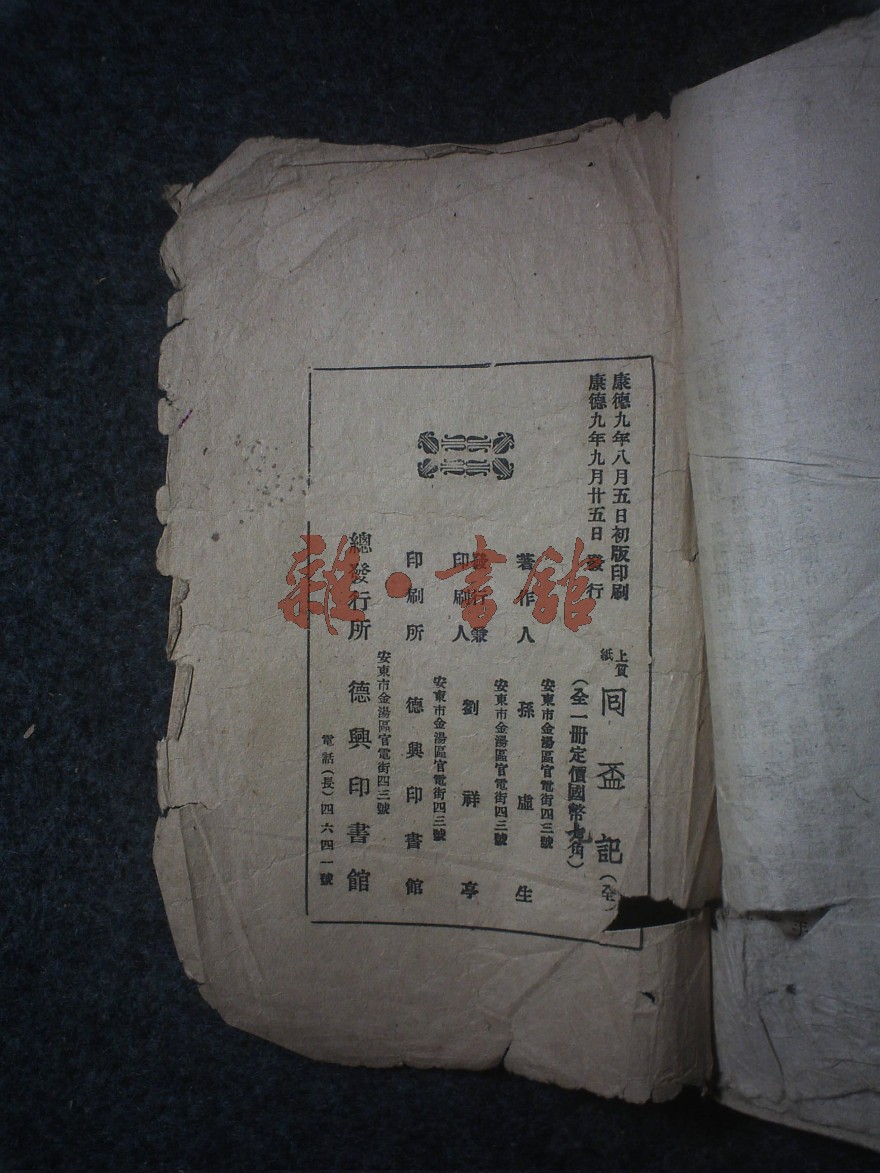 康德九年八月五日初版印刷
康德九年九月廿五日發行
上質紙
同盃記(全)
(全一冊定價國幣九角)
著作人
安東市金湯區官電街四三號
孫虛生
發行兼
印刷人
安東市金湯區官電街四三號
劉祥亭
印刷所
安東市金湯區官電街四三號
德興印書館
總發行所
安東市金湯區官電街四三號
德興印書館
電話(長)四六四一號
雜·書館